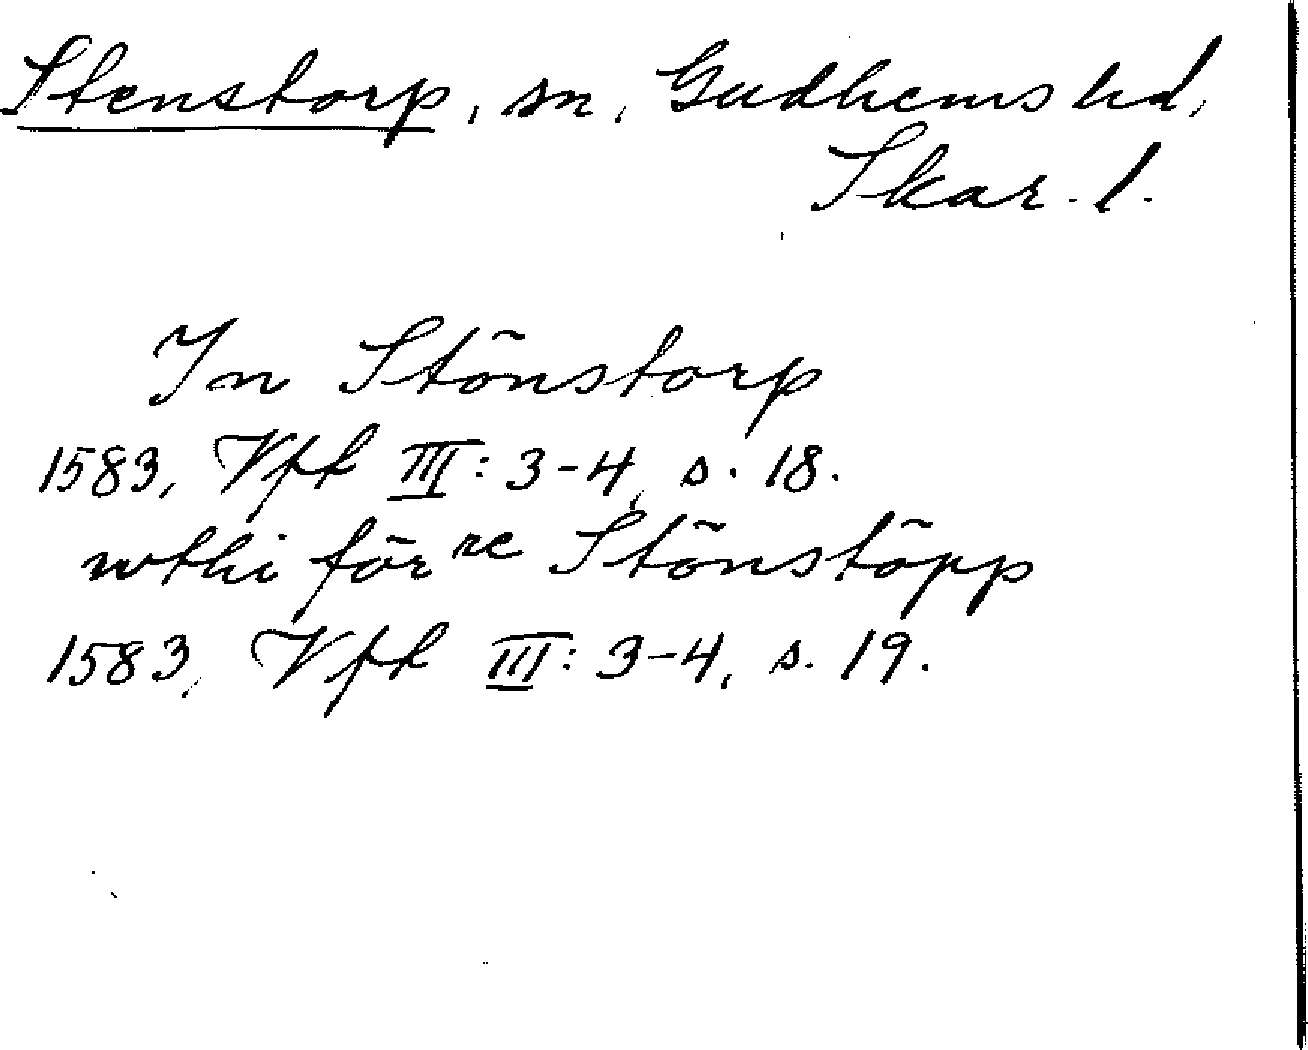 Stenstorp, sn, Gudhems hd,
Skar. l.
In Stönstorp
1583, Vfh III: 3-4, s. 18.
wthi förre Stönstöpp
1583, Vfh III: 3-4, s. 19.